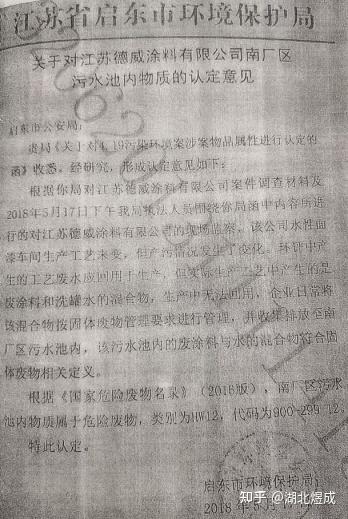 江苏省启东市环境保护局
关于对江苏德威涂料有限公司南厂区
污水池内物质的认定意见
启东市公安局:
贵局《关于对4.19污染环境案涉案物品属性进行认定的
函》收悉。经研究,形成认定意见如下:
根据你局对江苏德威涂料有限公司案件调查材料及
2018年5月17日下午我局执法人员围绕你局函中内容所进
行的对江苏德威涂料有限公司的现场监察,该公司水性面
漆车间生产工艺未变,但产污情况发生了变化。环评中产
生的工艺废水应回用于生产,但实际生产工艺中产生的是
废涂料和洗罐水的混合物,生产中无法回用,企业日常将
该混合物按固体废物管理要求进行管理,并收集排放至南
厂区污水池内,该污水池内的废涂料与水的混合物符合固
体废物相关定义。
根据《国家危险废物名录》(2016版),南厂区污水
池内物质属于危险废物,类别为HW12,代码为900-299-12。
特此认定。
启东市环境保护局
2018年5月
知乎 @湖北煜成